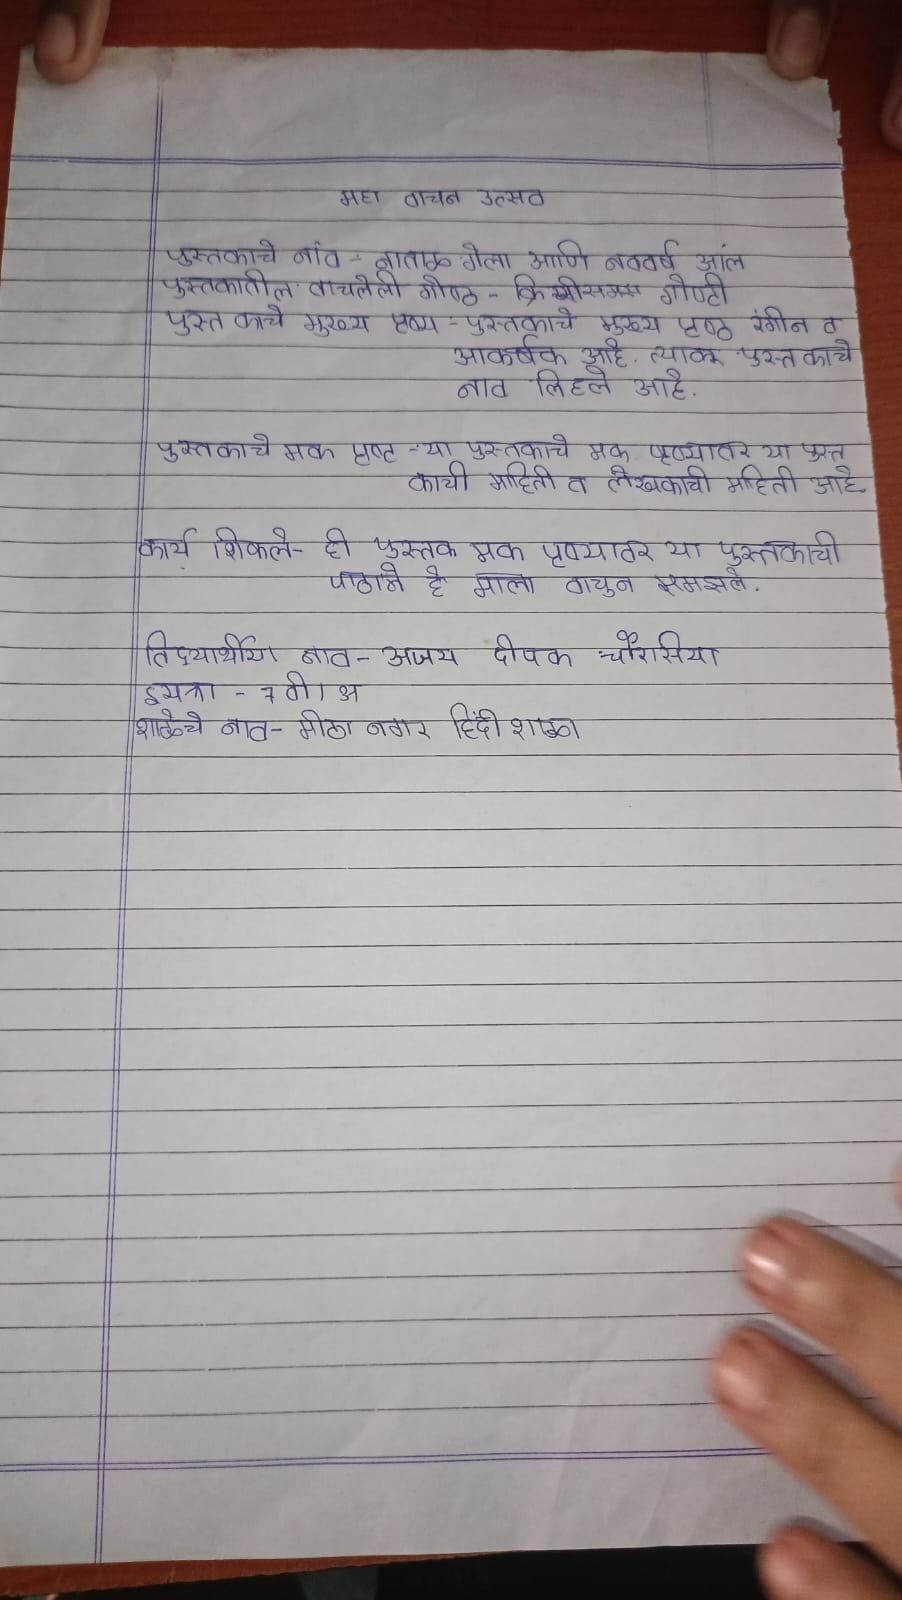 महा वाचन उत्सव
पुस्तकाचे नांव - नाताळ गेला आणि नववर्ष आलं
पुस्तकातील वाचलेली गोष्ठ - गोष्टी
पुस्तकाचे मुख्य पृष्य - पुस्तकाचे मुख्य पृष्ठ रंगीन व
आकर्षक आहे. त्यावर पुस्तकाचे
नाव लिहले आहे.
पुस्तकाचे मक पृष्ट - या पुस्तकाचे मक पृष्ठ्यावर या पुस्त
काची माहिती व लेखकाची महिती आहे.
कार्य शिकले - ही पुस्तक मक पृष्यावर या पुस्तकाची
हे माला वाचुन समझले.
नाव - अजय दीपक चौरसिया
इयत्ता - 7 वी। अ
शाळेचे नाव - मीठा नगर हिंदी शाळा